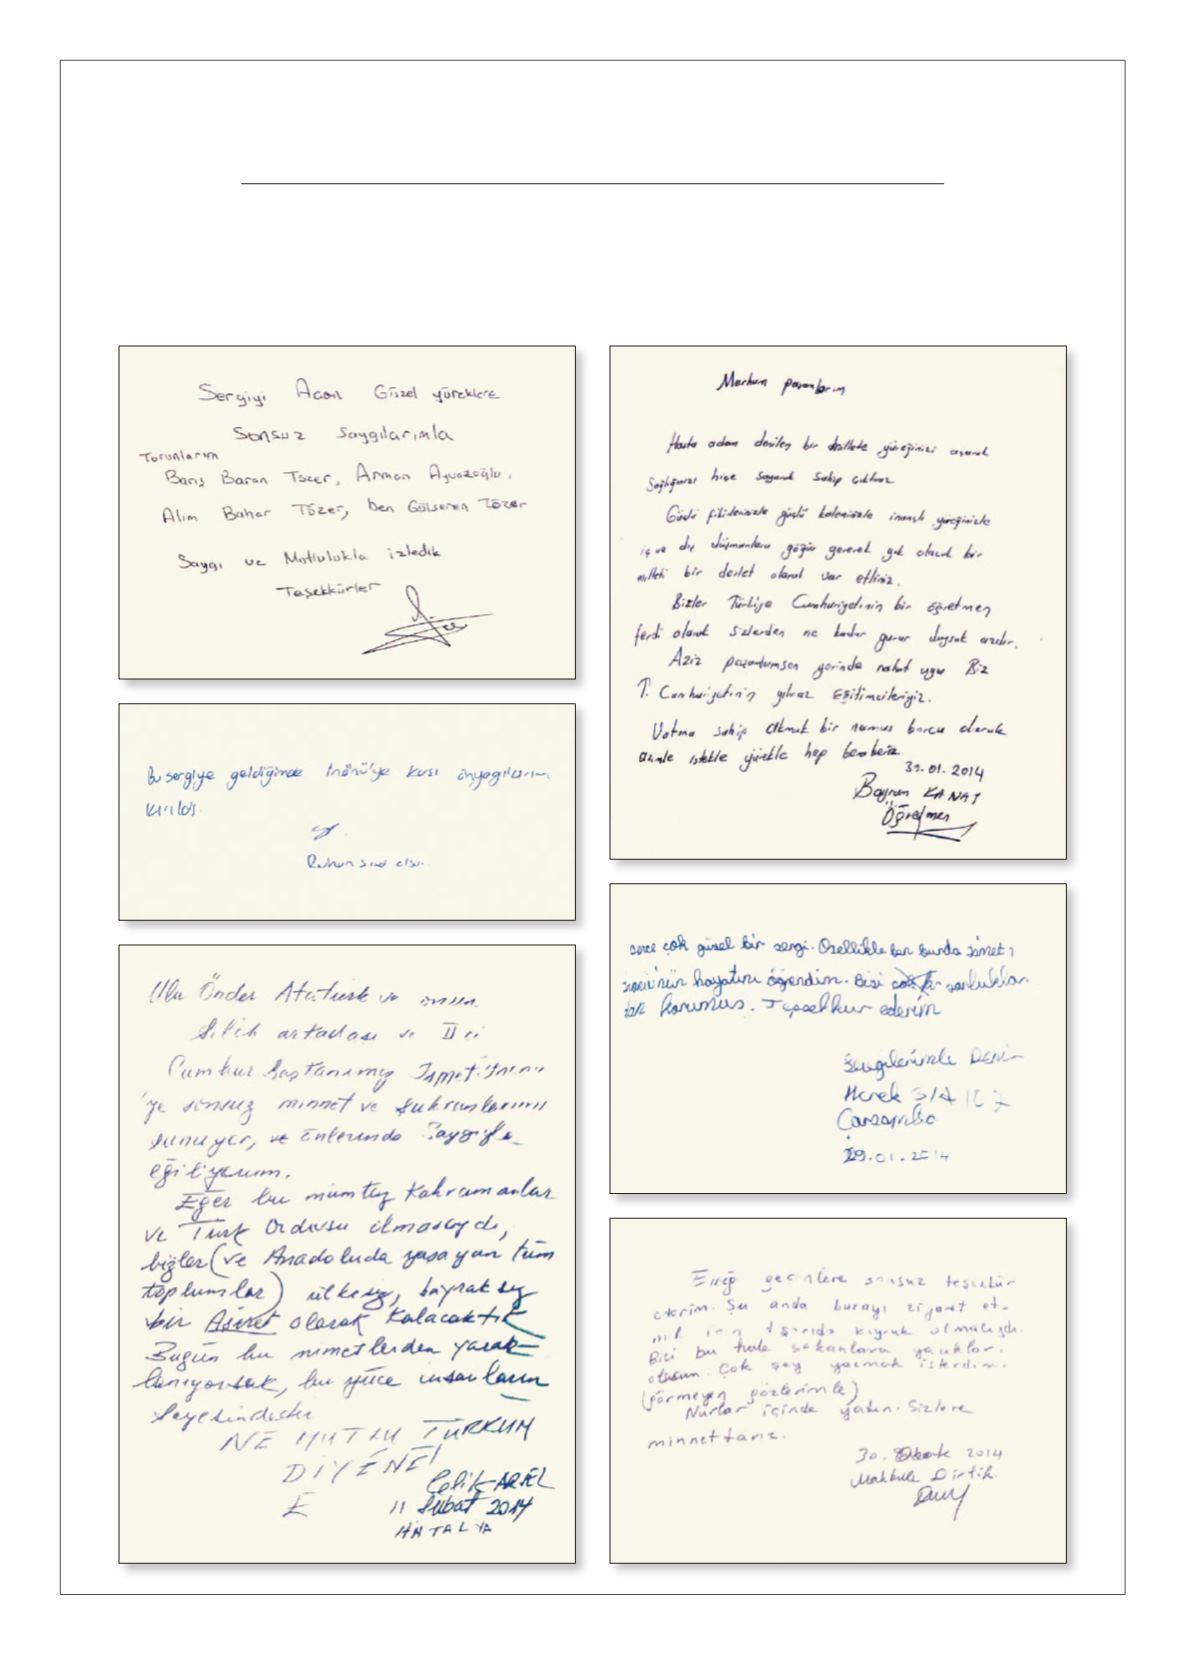 Sergiyi Açan Güzel yüreklere
Sonsuz Saygılarımla
Torunlarım
Barış Baran Tözer, Arman Ayvazoğlu,
Alım Bahar Tözer, ben Gülseren Tözer
Saygı ve Mutlulukla izledik
Teşekkürler
Bu sergiye geldiğimde İnönü'ye karşı önyargılarım
kırıldı.
Ruhun şad olsun.
Ulu Önder Atatürk ve onun
Silâh arkadaşı ve II ci
Cumhur başkanımız İsmet İnönü
'ye sonsuz minnet ve şükranlarımı
sunuyor, ve önlerinde Saygıyla
eğiliyorum.
Eğer bu mümtaz Kahramanlar
ve Türk Ordusu olmasaydı,
bizler (ve Anadoluda yaşayan tüm
toplumlar) ülkesiz, bayraksız
bir Aşiret olarak kalacaktık
Bugün bu nimetlerden yarar-
lanıyorsak, bu yüce insanların
Sayesindedir
NE MUTLU TÜRKÜM
DİYENE!
Çelik ARIEL
11 Şubat 2014
ANTALYA
Merhum paşalarım
Hasta adam denilen bir millete yüreğinizi açarak
Sağlığınızı hiçe sayarak sahip çıktınız
Güçlü fikirlerinizle güçlü kaleminizle inançlı yüreğinizle
iç ve dış düşmanlara göğüs gererek yok olacak bir
milleti bir devlet olarak var ettiniz.
Bizler Türkiye Cumhuriyetinin bir öğretmen
ferdi olarak sizlerden ne kadar gurur duysak azdır.
Aziz paşam yerinde rahat uyu Biz
T. Cumhuriyetinin yılmaz Eğitimcileriyiz.
Vatana sahip çıkmak bir namus borcu olarak
azimle istekle yürekle hep beraberiz
31.01.2014
Bayram KANAT
Öğretmen
bence çok güzel bir sergi. Özellikle ben burda İsmet
İnönü'nün hayatını öğrendim. Bizi zorluklar
dan korumuş. Teşekkür ederim
Sevgilerimle Deniz
Çarşamba
29.01.2014
Emeği geçenlere sonsuz teşekkür
ederim. Şu anda burayı ziyaret et-
mek için dışarıda kuyruk olmalıydı.
Bizi bu hale sokanlara yazıklar
olusun. Çok şey yazmak isterdim.
(görmeyen gözlerimle)
Nurlar içinde yatın. Sizlere
minnettarız.
30. Ocak 2014
Mahbule Dirtik